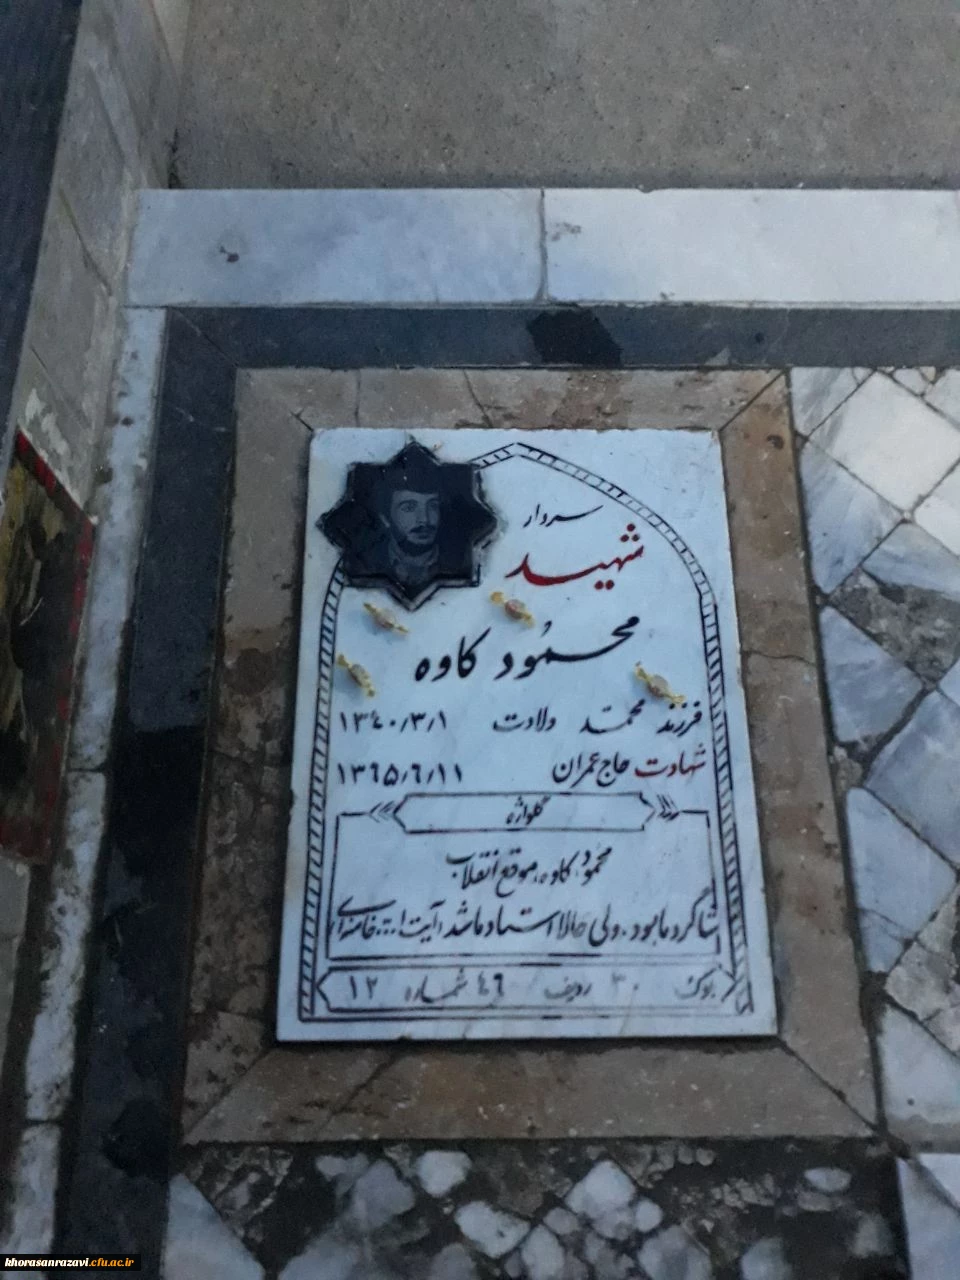 سردار
شهید
محمود کاوه
فرزند محمد ولادت ۱۳۴۰/۳/۱
شهادت حاج عمران ۱۳۶۵/۶/۱۱
گلواژه
محمود کاوه، موقع انقلاب
شاگرد ما بود، ولی حالا استاد ما شد، آیت ا... خامنه ای
بلوک ۳۰ ردیف ۴۶ شماره ۱۲
khorasanrazavi.cfu.ac.ir